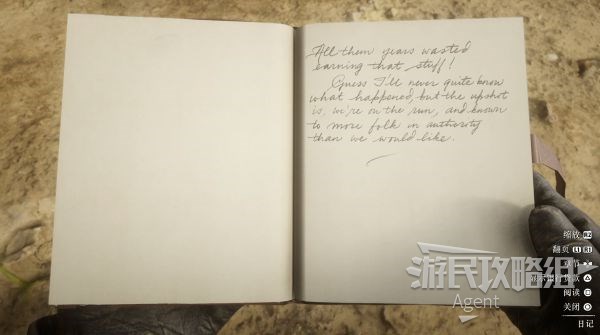 All them years wasted
earning that stuff!
Guess I'll never quite know
what happened, but the upshot
is, we're on the run, and known
to more folk in authority
than we would like.
缩放 R2
翻页 L1 R1
阅读
关闭
日记
游民攻略组
Agent